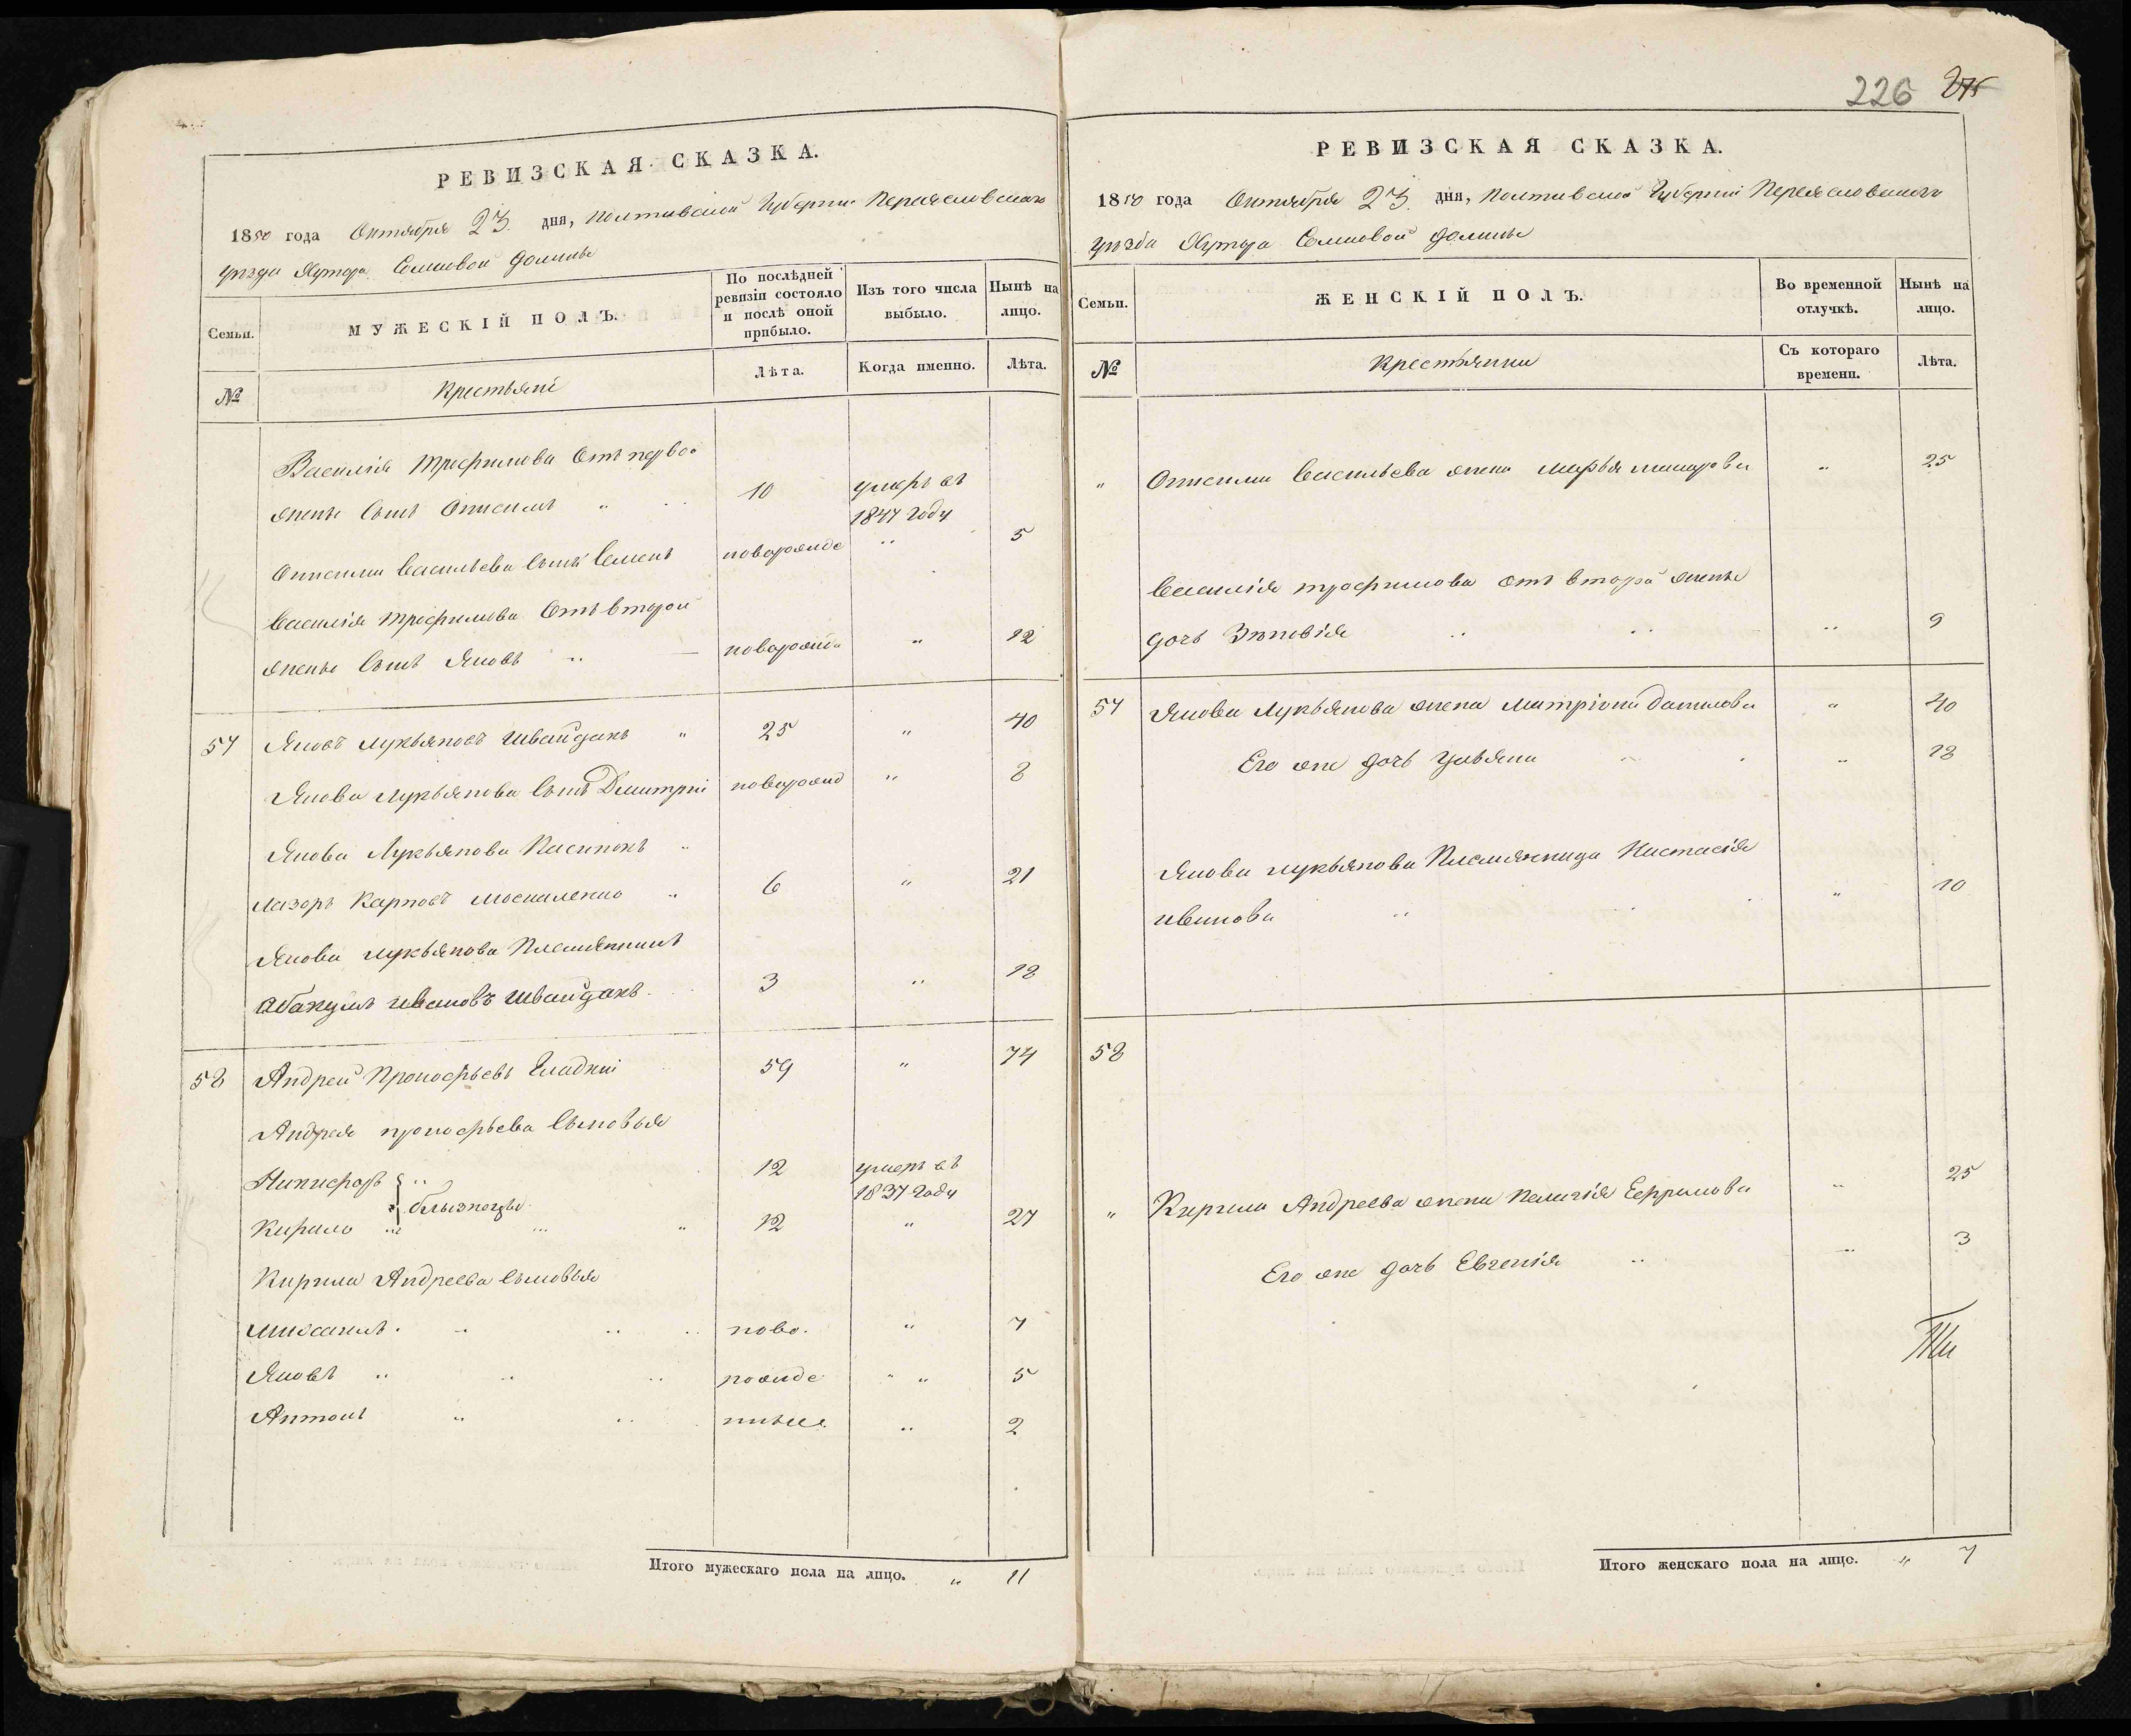 226 275
РЕВИЗСКАЯ СКАЗКА.
1850 года Октября 23. дня, Полтавской Губернии Переяславскаго
уезда Хутора Семковой долины
Семьи.
МУЖЕСКІЙ ПОЛЪ.
По послѣдней ревизіи состояло и послѣ оной прибыло.
Изъ того числа выбыло.
Нынѣ на лицо.
№
Крестьяне
Лѣта.
Когда именно.
Лѣта.
Василія Трофимова Отъ первой
жены Сынъ Онисимъ " 10 умеръ въ
1847 году
Онисима Васильева Сынъ Семенъ новорожде " 5
Василія Трофимова Отъ второй
жены Сынъ Яковъ " новорожд " 12
57 Яковъ Лукьяновъ Швайдакъ " 25 " 40
Якова Лукьянова Сынъ Дмитрій новорожд " 8
Якова Лукьянова Пасинокъ "
Лазоръ Карповъ Москаленко " 6 " 21
Якова Лукьянова Племянникъ
Абакумъ Ивановъ Швайдакъ 3 " 18
58 Андрей Прокофьевъ Гладкій 59 " 74
Андрея прокофьева Сыновья
Никифоръ " 12 умеръ въ
близнецы 1837 году
Кирило " " " 12 " 27
Кирила Андреева Сыновья
Михаилъ " " " ново. " 7
Яковъ " " " рожде " " 5
Антонъ " " нные " 2
Итого мужескаго пола на лицо. " 11
РЕВИЗСКАЯ СКАЗКА.
1850 года Октября 23. дня, Полтавской Губерніи Переяславскаго
уезда Хутора Семковой долины
Семьи.
ЖЕНСКІЙ ПОЛЪ.
Во временной отлучкѣ.
Нынѣ на лицо.
№
Крестьянки
Съ котораго времени.
Лѣта.
" Онисима Васильева жена Марья Макарова " 25
Василія трофимова отъ второй жены
дочь Зѣновія " " " 9
57 Якова Лукьянова жена Матріона Данилова " 40
Его же дочь Ульяна " " 18
Якова Лукьянова Племянница Настасія
Иванова " " 10
58
" Кирила Андреева жена Пелагія Ефримова " 25
Его же дочь Евгенія " " 3
Итого женскаго пола на лицо. " 7